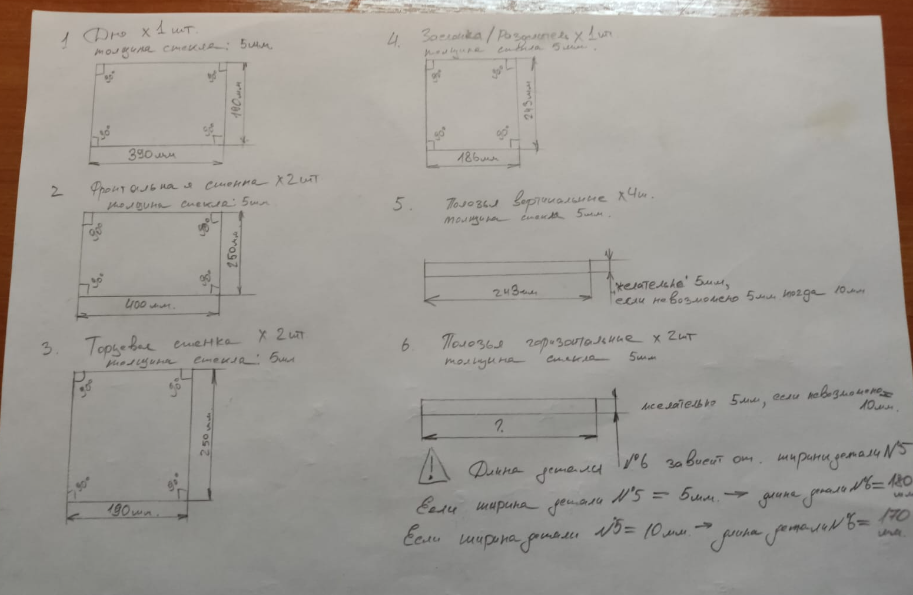 1 Дно х 1 шт.
толщина стекла: 5мм
90°
90°
90°
90°
190мм
390мм
2 Фронтальная стенка х2шт
толщина стекла: 5мм
90°
90°
90°
90°
250мм.
400мм.
3. Торцевая стенка х 2шт
толщина стекла: 5мм
90°
90°
90°
90°
250мм
190мм.
4. Заслонка/Разделитель х 1шт
толщина стекла 5мм.
90°
90°
90°
90°
243мм
186мм
5. Полозья вертикальные х4ш.
толщина стекла 5мм.
243мм.
желательно 5мм,
если невозможно 5мм тогда 10мм
6 Полозья горизотальные х 2шт
толщина стекла 5мм
?
желательно 5мм, если невозможно
10мм.
! Длина детали №6 зависит от. ширины детали №5
Если ширина детали №5 = 5мм. → длина детали №6=180
мм
Если ширина детали №5= 10мм. → длина детали №6= 170
мм.